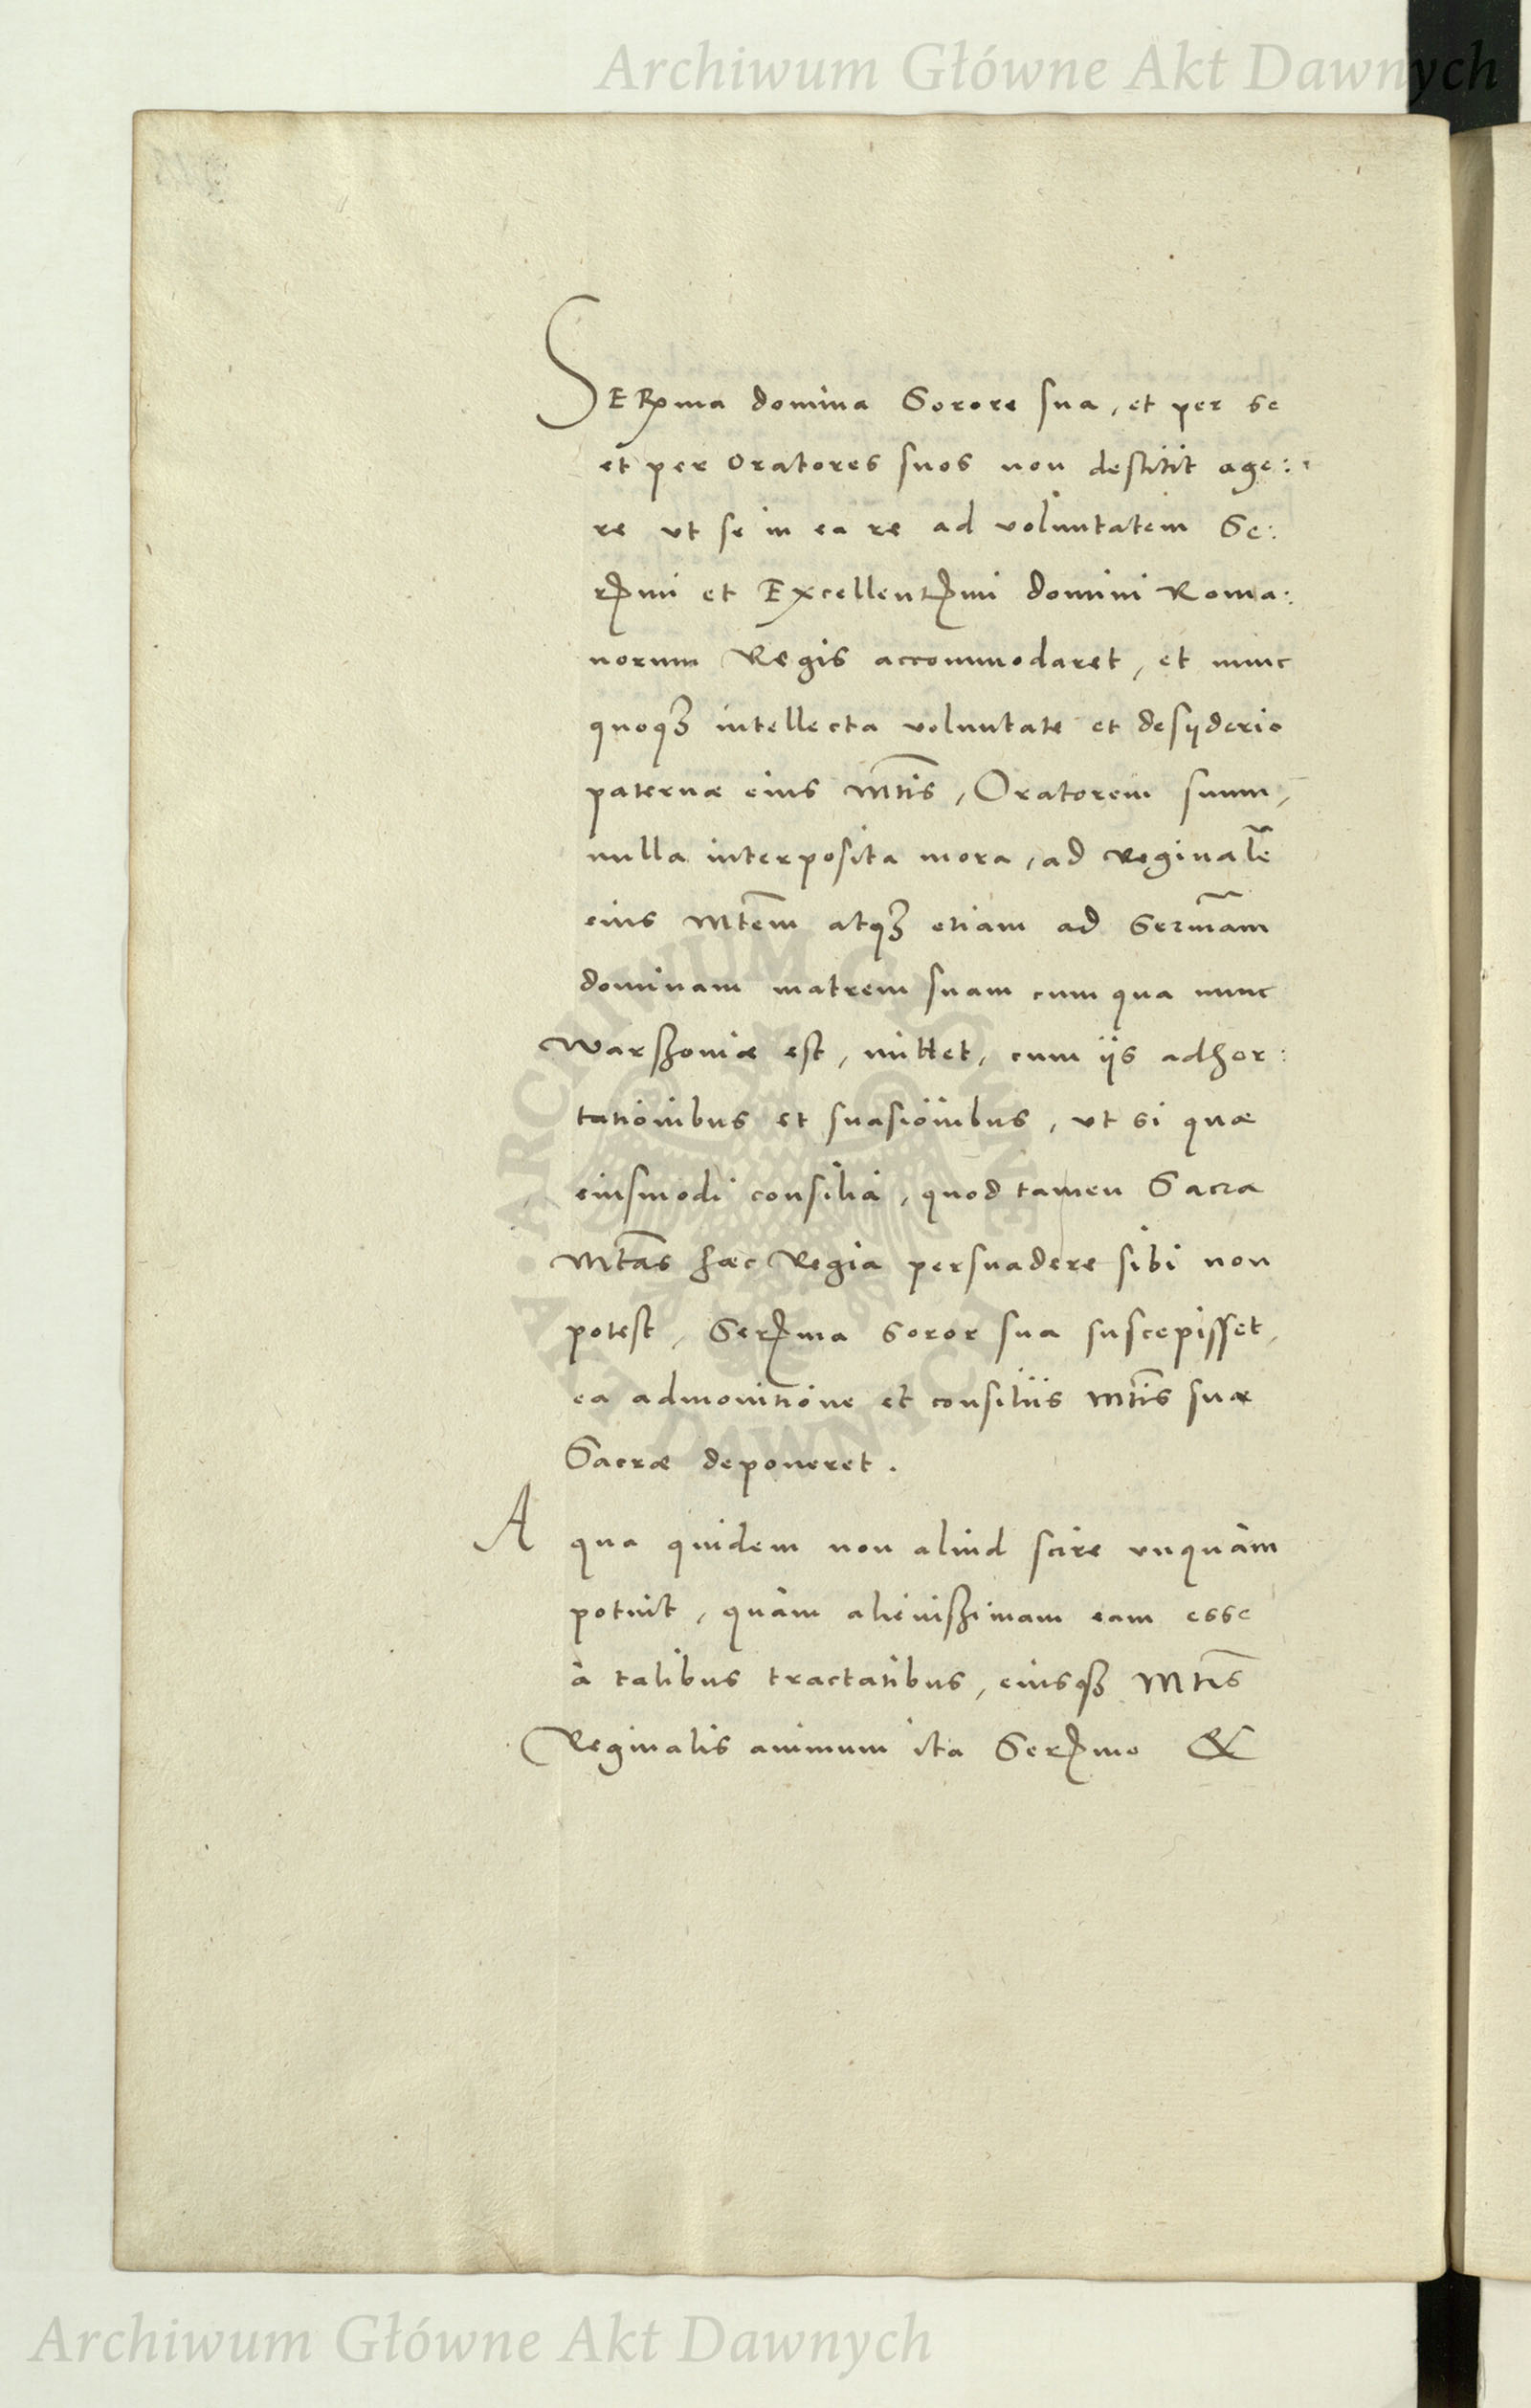 Archiwum Główne Akt Dawnych
SERma domina Sorore sua, et per se
et per Oratores suos non destitit age:
re vt se in ea re ad voluntatem Se:
rmi et Excellentmi domini Roma:
norum Regis accommodaret, et nunc
quoqȝ intellecta voluntate et desyderio
paternæ eius Mtis, Oratorem suum,
nulla interposita mora, ad Reginalē
eius Mtem atqȝ etiam ad Sermam
dominam matrem suam cum qua nunc
Warschoviæ est, mittet, cum iis adhor:
tationibus et suasionibus, vt si quæ
eiusmodi consilia, quod tamen Sacra
Mtas hæc Regia persuadere sibi non
potest, Serma soror sua suscepisset,
ea admonitione et consiliis Mtis suæ
Sacræ deponeret.
A qua quidem non aliud scire vnquàm
potuit, quàm alienissimam eam esse
à talibus tractatibus, eiusqȝ Mtis
Reginalis animum ita Sermo &
ARCHIWUM GŁÓWNE AKT DAWNYCH
Archiwum Główne Akt Dawnych